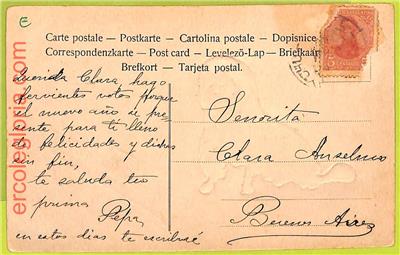 Carte postale – Postkarte – Cartolina postale – Dopisnice
Correspondenzkarte – Post card – Levelező-Lap – Briefkaart
Brefkort – Tarjeta postal.
Querida Clara, hago
fervientes votos porque
el nuevo año se pre
sente para ti lleno
de felicidades y dichas
sin fin,
te saluda tu
prima
Pepa
en estos dias te escribiré
Señorita
Clara Anselmo
Buenos Aires
ercolegiani.com